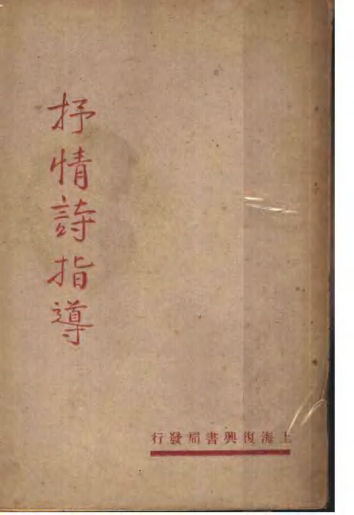 抒情詩指導
上海復興書局發行